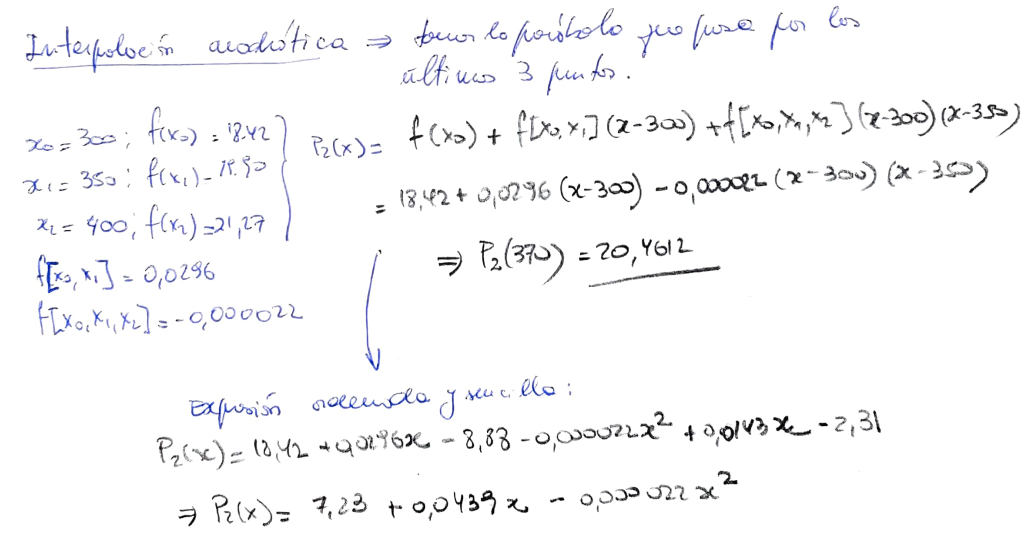 Interpolación cuadrática ⇒ tomar la parábola que pasa por los
últimos 3 puntos.
x₀ = 300; f(x₀) = 18.42
x₁ = 350; f(x₁) = 19.90
x₂ = 400; f(x₂) = 21,27
f[x₀,x₁] = 0,0296
f[x₀,x₁,x₂] = -0,000022
P₂(x) = f(x₀) + f[x₀,x₁](x-300) + f[x₀,x₁,x₂](x-300)(x-350)
= 18,42 + 0,0296 (x-300) - 0,000022 (x-300)(x-350)
⇒ P₂(370) = 20,4612
Expresión ordenada y sencilla:
P₂(x) = 18,42 + 0,0296x - 8,88 - 0,000022x² + 0,0143x - 2,31
⇒ P₂(x) = 7,23 + 0,0439x - 0,000022x²